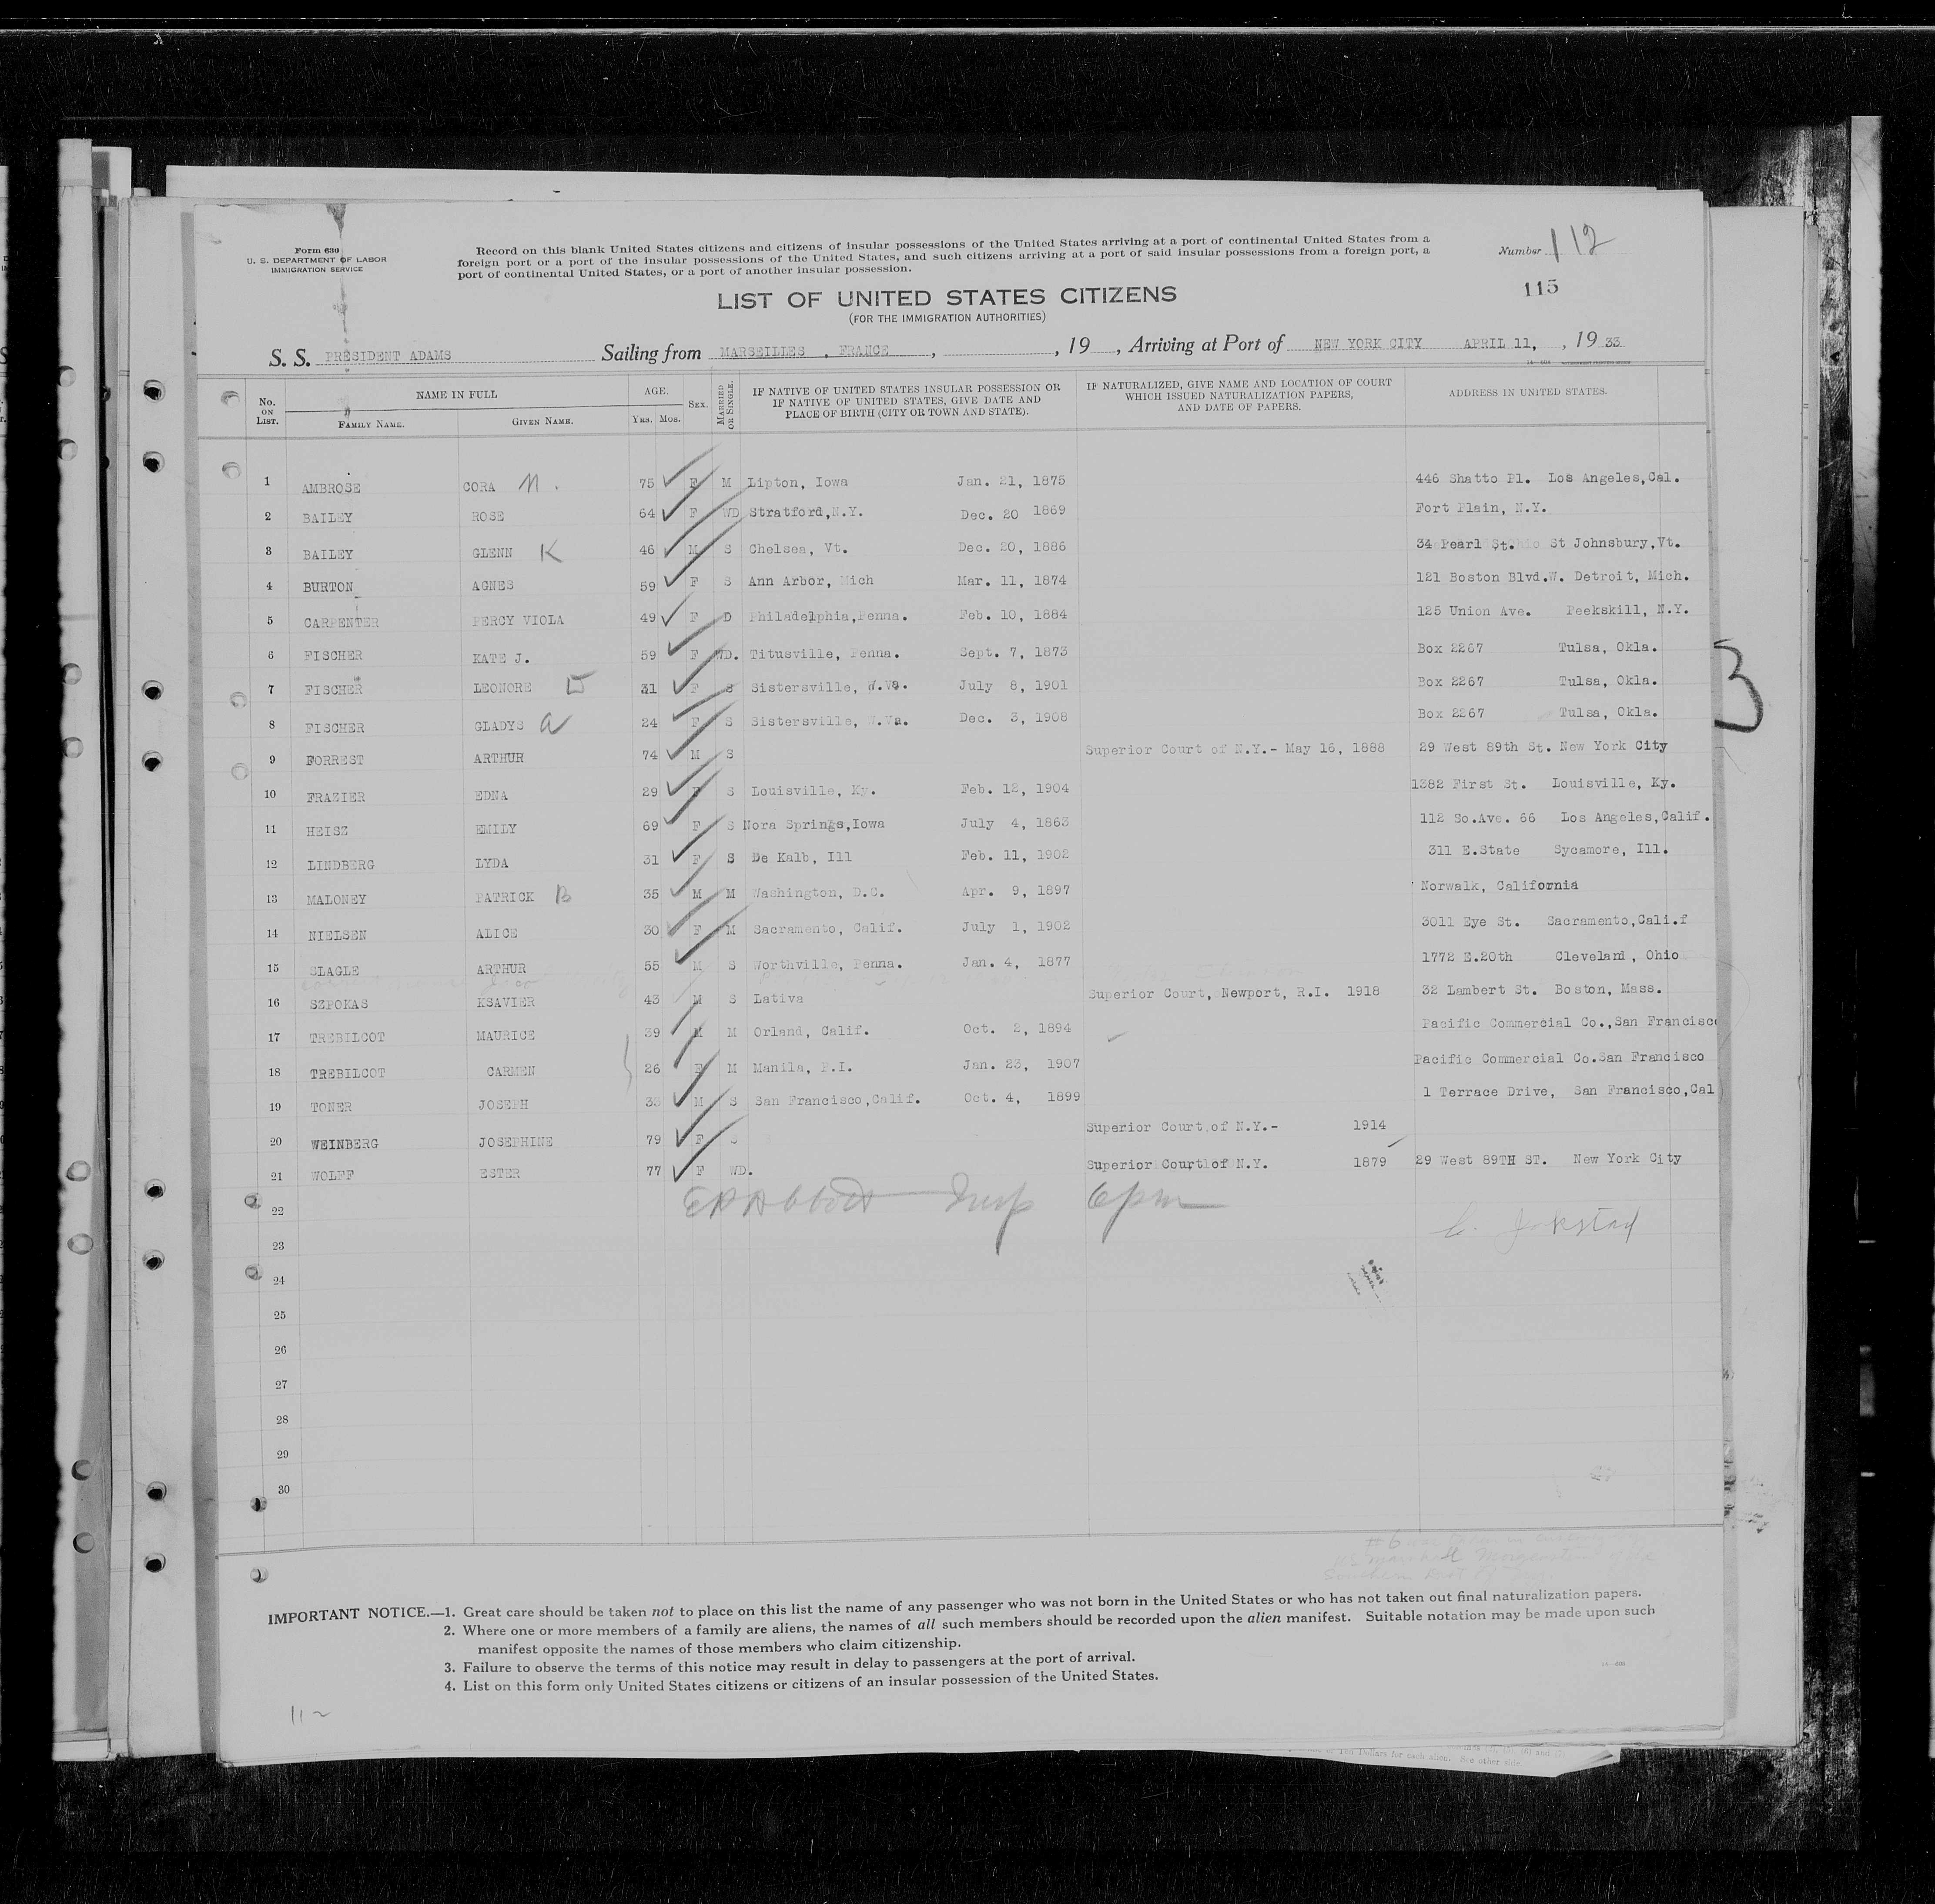 Form 630
U. S. DEPARTMENT OF LABOR
IMMIGRATION SERVICE
Record on this blank United States citizens and citizens of insular possessions of the United States arriving at a port of continental United States from a
foreign port or a port of the insular possessions of the United States, and such citizens arriving at a port of said insular possessions from a foreign port, a
port of continental United States, or a port of another insular possession.
Number 112
115
LIST OF UNITED STATES CITIZENS
(FOR THE IMMIGRATION AUTHORITIES)
S. S. PRESIDENT ADAMS Sailing from MARSEILLES , FRANCE , , 19 , Arriving at Port of NEW YORK CITY APRIL 11, , 19 33
No. ON LIST. NAME IN FULL FAMILY NAME. GIVEN NAME. AGE. YRS. MOS. SEX. MARRIED OR SINGLE. IF NATIVE OF UNITED STATES INSULAR POSSESSION OR IF NATIVE OF UNITED STATES, GIVE DATE AND PLACE OF BIRTH (CITY OR TOWN AND STATE). IF NATURALIZED, GIVE NAME AND LOCATION OF COURT WHICH ISSUED NATURALIZATION PAPERS, AND DATE OF PAPERS. ADDRESS IN UNITED STATES.
1 AMBROSE CORA N. 75 F M Lipton, Iowa Jan. 21, 1875 446 Shatto Pl. Los Angeles,Cal.
2 BAILEY ROSE 64 F WD Stratford,N.Y. Dec. 20 1869 Fort Plain, N.Y.
3 BAILEY GLENN K 46 M S Chelsea, Vt. Dec. 20, 1886 34 Pearl St. St Johnsbury,Vt.
4 BURTON AGNES 59 F S Ann Arbor, Mich Mar. 11, 1874 121 Boston Blvd.W. Detroit, Mich.
5 CARPENTER PERCY VIOLA 49 F D Philadelphia,Penna. Feb. 10, 1884 125 Union Ave. Peekskill, N.Y.
6 FISCHER KATE J. 59 F WD. Titusville, Penna. Sept. 7, 1873 Box 2267 Tulsa, Okla.
7 FISCHER LEONORE 31 F S Sistersville, W.Va. July 8, 1901 Box 2267 Tulsa, Okla.
8 FISCHER GLADYS a 24 F S Sistersville, W.Va. Dec. 3, 1908 Box 2267 Tulsa, Okla.
3
9 FORREST ARTHUR 74 M S Superior Court of N.Y.- May 16, 1888 29 West 89th St. New York City
10 FRAZIER EDNA 29 F S Louisville, Ky. Feb. 12, 1904 1382 First St. Louisville, Ky.
11 HEISZ EMILY 69 F S Nora Springs,Iowa July 4, 1863 112 So.Ave. 66 Los Angeles,Calif.
12 LINDBERG LYDA 31 F S De Kalb, Ill Feb. 11, 1902 311 E.State Sycamore, Ill.
13 MALONEY PATRICK B 35 M M Washington, D.C. Apr. 9, 1897 Norwalk, California
14 NIELSEN ALICE 30 F M Sacramento, Calif. July 1, 1902 3011 Eye St. Sacramento,Cali.f
15 SLAGLE ARTHUR 55 M S Worthville, Penna. Jan. 4, 1877 1772 E.20th Cleveland, Ohio
16 SZPOKAS KSAVIER 43 M S Lativa Superior Court, Newport, R.I. 1918 32 Lambert St. Boston, Mass.
17 TREBILCOT MAURICE 39 M M Orland, Calif. Oct. 2, 1894 Pacific Commercial Co.,San Francisco
18 TREBILCOT CARMEN 26 F M Manila, P.I. Jan. 23, 1907 Pacific Commercial Co.San Francisco
19 TONER JOSEPH 33 M S San Francisco,Calif. Oct. 4, 1899 1 Terrace Drive, San Francisco,Cal
20 WEINBERG JOSEPHINE 79 F S Superior Court of N.Y.- 1914
21 WOLFF ESTER 77 F WD. Superior Court of N.Y. 1879 29 West 89TH ST. New York City
22 Insp 6pm
23
24
25
26
27
28
29
30
IMPORTANT NOTICE.—1. Great care should be taken not to place on this list the name of any passenger who was not born in the United States or who has not taken out final naturalization papers.
2. Where one or more members of a family are aliens, the names of all such members should be recorded upon the alien manifest. Suitable notation may be made upon such
manifest opposite the names of those members who claim citizenship.
3. Failure to observe the terms of this notice may result in delay to passengers at the port of arrival.
4. List on this form only United States citizens or citizens of an insular possession of the United States.